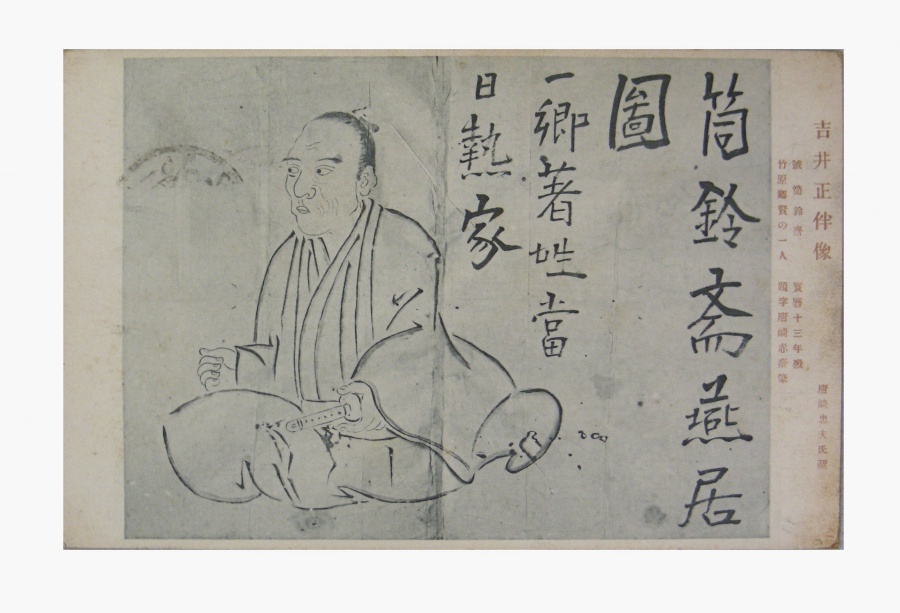 吉井正伴像
號 筒鈴齋 寶曆十三年歿
竹原鄕賢の一人 題字唐崎赤齋筆
唐崎忠夫氏藏
筒鈴斎燕居
圖
一鄉著姓當
日熱家